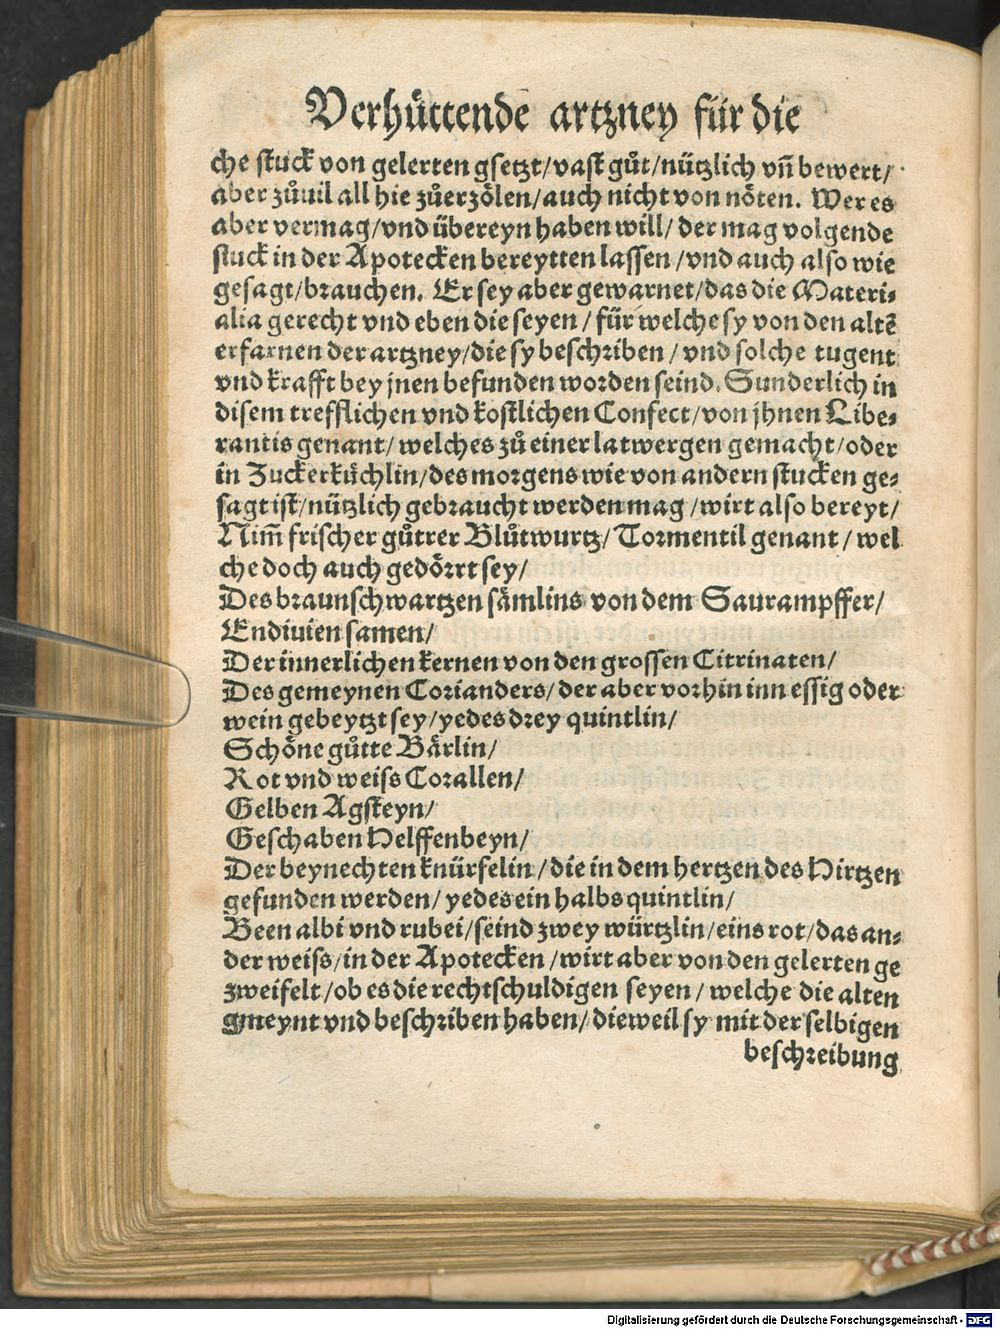 Verhůttende artzney für die
che stuck von gelerten gsetzt/vast gůt/nützlich vñ bewert/
aber zůuil all hie zůerzölen/auch nicht von nöten. Wer es
aber vermag/vnd übereyn haben will/ der mag volgende
stuck in der Apotecken bereytten lassen/vnd auch also wie
gesagt/brauchen. Er sey aber gewarnet/das die Materi-
alia gerecht vnd eben die seyen/ für welche sy von den altē
erfarnen der artzney/die sy beschriben/ vnd solche tugent
vnd krafft bey jnen befunden worden seind. Sunderlich in
disem trefflichen vnd kostlichen Confect/von jhnen Libe-
rantis genant/ welches zů einer latwergen gemacht/oder
in Zuckerküchlin/des morgens wie von andern stucken ge-
sagt ist/nützlich gebraucht werden mag/wirt also bereyt/
Nim̄ frischer gůtrer Blůtwurtz/ Tormentil genant/ wel
che doch auch gedörrt sey/
Des braunschwartzen sämlins von dem Saurampffer/
Endiuien samen/
Der innerlichen kernen von den grossen Citrinaten/
Des gemeynen Corianders/ der aber vorhin inn essig oder
wein gebeytzt sey/yedes drey quintlin/
Schöne gůtte Bärlin/
Rot vnd weiss Corallen/
Gelben Agsteyn/
Geschaben Helffenbeyn/
Der beynechten knürfelin/die in dem hertzen des Hirtzen
gefunden werden/ yedes ein halbs quintlin/
Been albi vnd rubei/seind zwey würtzlin/eins rot/das an-
der weiss/in der Apotecken/wirt aber von den gelerten ge
zweifelt/ob es die rechtschuldigen seyen/ welche die alten
gmeynt vnd beschriben haben/ dieweil sy mit der selbigen
beschreibung
Digitalisierung gefördert durch die Deutsche Forschungsgemeinschaft - DFG